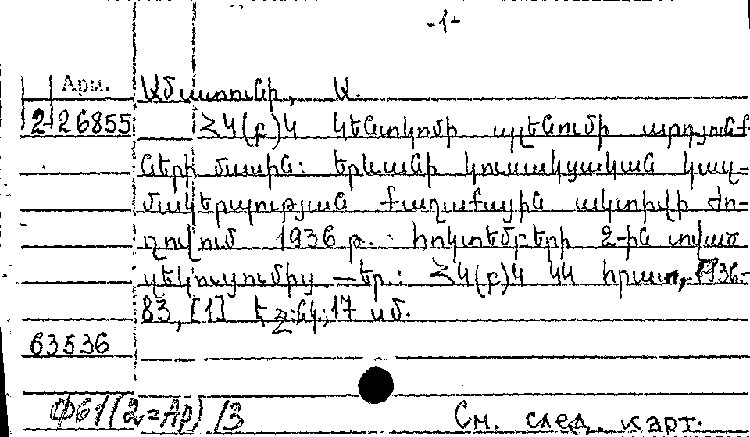 -1-
Арм.
Ամատունի, Ա.
2-26855 ՀԿ(բ)Կ Կենտկոմի պլենումի արդյունք-
ների մասին: Երևանի կուսակցական կազ-
մակերպության քաղաքային ակտիվի ժո-
ղովում 1936 թ. հոկտեմբերի 2-ին տված
զեկուցումից —Եր.: ՀԿ(բ)Կ ԿԿ հրատ, 1936-
83, [1] էջ: նկ; 17 սմ.
63536
Ф61(2=Ар) 13
См. след. карт.